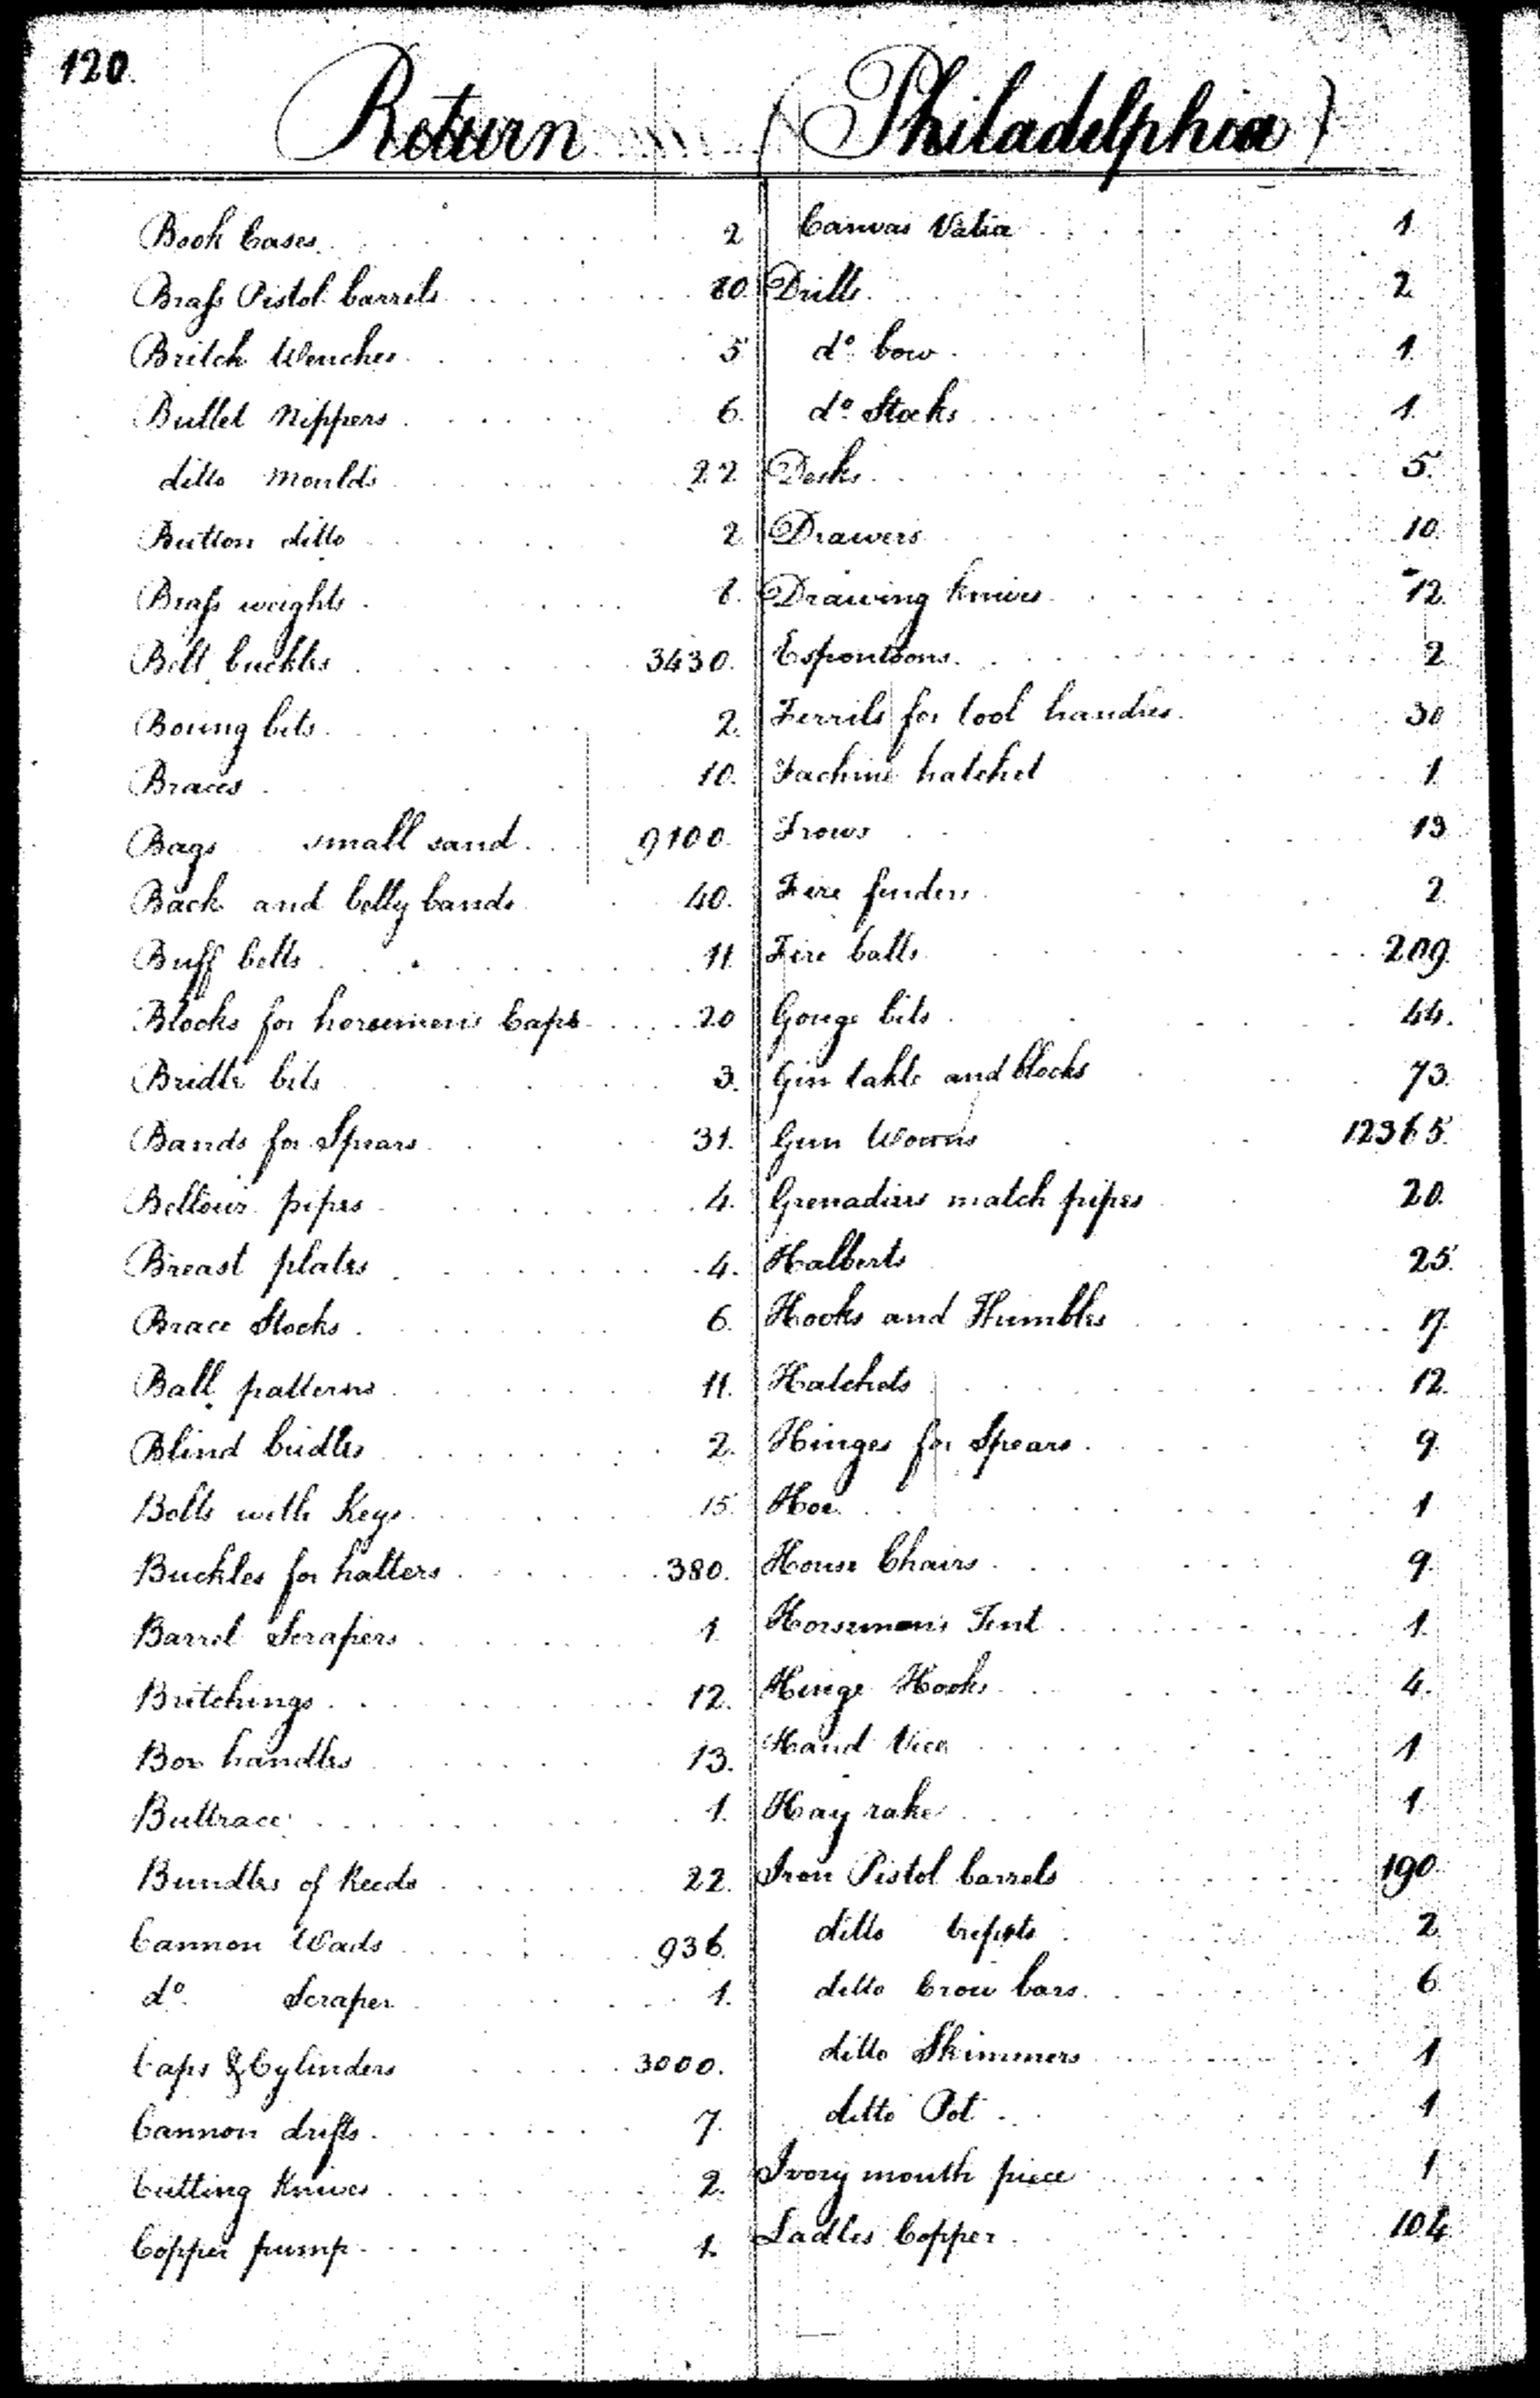 120.
Return (Philadelphia)
Book Cases 2
Brass Pistol barrels 80.
Britch Wenches 5
Bullet Nippers 6.
ditto Moulds 22
Button ditto 2
Brass weights 8.
Belt buckles 3430.
Boring bits 2.
Braces 10.
Bags small sand 9100.
Back and belly bands 40.
Buff belts 11
Blocks for horsemen's Caps 20
Bridle bits 3.
Bands for Spears 31.
Bellows pipes 4.
Breast plates 4.
Brace Stocks 6.
Ball patterns 11.
Blind bridles 2.
Bolts with Keys 15
Buckles for halters 380.
Barrel Scrapers 1
Britchings 12.
Box handles 13.
Buttrace 1.
Bundles of Reeds 22.
Cannon Wads 936.
do. Scraper 1.
Caps & Cylinders 3000.
Cannon drifts 7.
Cutting Knives 2.
Copper pump 1.
Canvas Valice 1
Drills 2
do. bow 1
do. Stocks 1
Desks 5.
Drawers 10.
Drawing knives 12.
Espontoons 2
Ferrils for tool handles 30
Fachine hatchet 1
Frows 13
Fire fenders 2
Fire balls 209.
Gouge bits 44.
Gin takle and blocks 73.
Gun Worms 12365.
Grenadiers match pipes 20.
Halberts 25.
Hooks and Thumbles 17.
Hatchets 12.
Hinges for Spears 9
Hoe 1
House Chairs 9.
Horsemen's Tent 1.
Hinge Hooks 4.
Hand Vice 1
Hay rake 1.
Iron Pistol barrels 190
ditto 2
ditto Crow bars 6
ditto Skimmers 1
ditto Pot 1
Ivory mouth piece 1
Ladles Copper 104